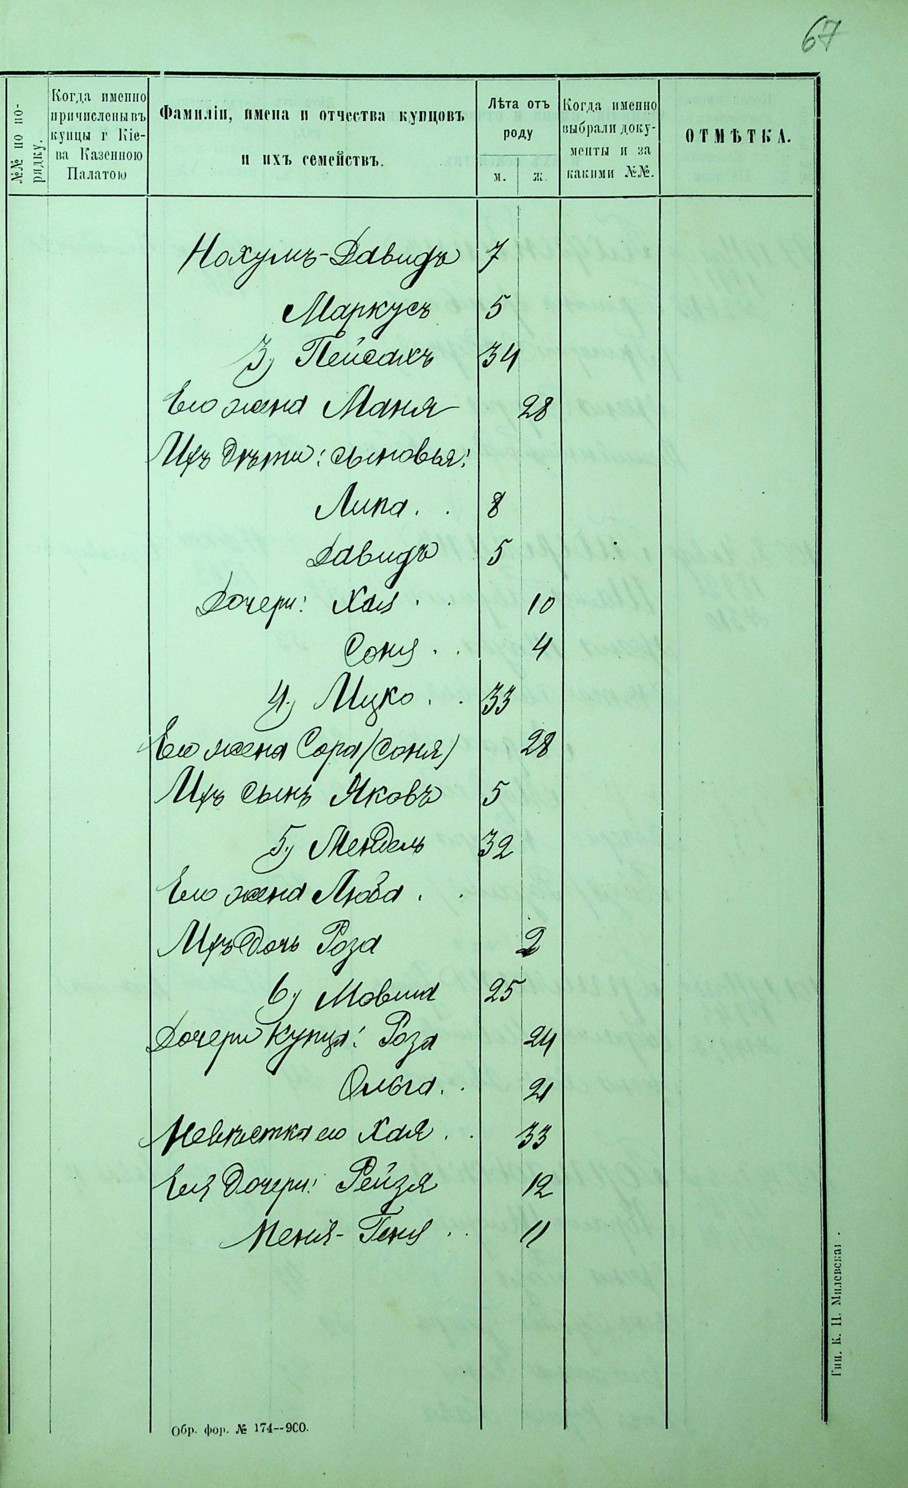 67
№№ по по-
рядку.
Когда именно
причислены въ
купцы г Кіе-
ва Казенною
Палатою
Фамиліи, имена и отчества купцовъ
и ихъ семействъ.
Лѣта отъ
роду
м. ж.
Когда именно
выбрали доку-
менты и за
какими №№.
ОТМѢТКА.
Нохумъ-Давидъ 7
Маркусъ 5
3) Пейсахъ 34
Его жена Маня 28
Ихъ дѣти: сыновья:
Липа . . 8
Давидъ 5
Дочери: Хая . . 10
Соня . . 4
4) Ицко . . 33
Его жена Сора (Соня) 28
Ихъ сынъ Яковъ 5
5) Мендель 32
Его жена Люба . .
Ихъ дочь Роза 2
6) Мовша 25
Дочери купца: Роза 24
Ольга . . 21
Невѣстка его Хая . . 33
Ея дочери: Рейзя 12
Меня-Геня . . 11
Обр. фор. № 174--900.
Тип. К. Н. Милевскаг.